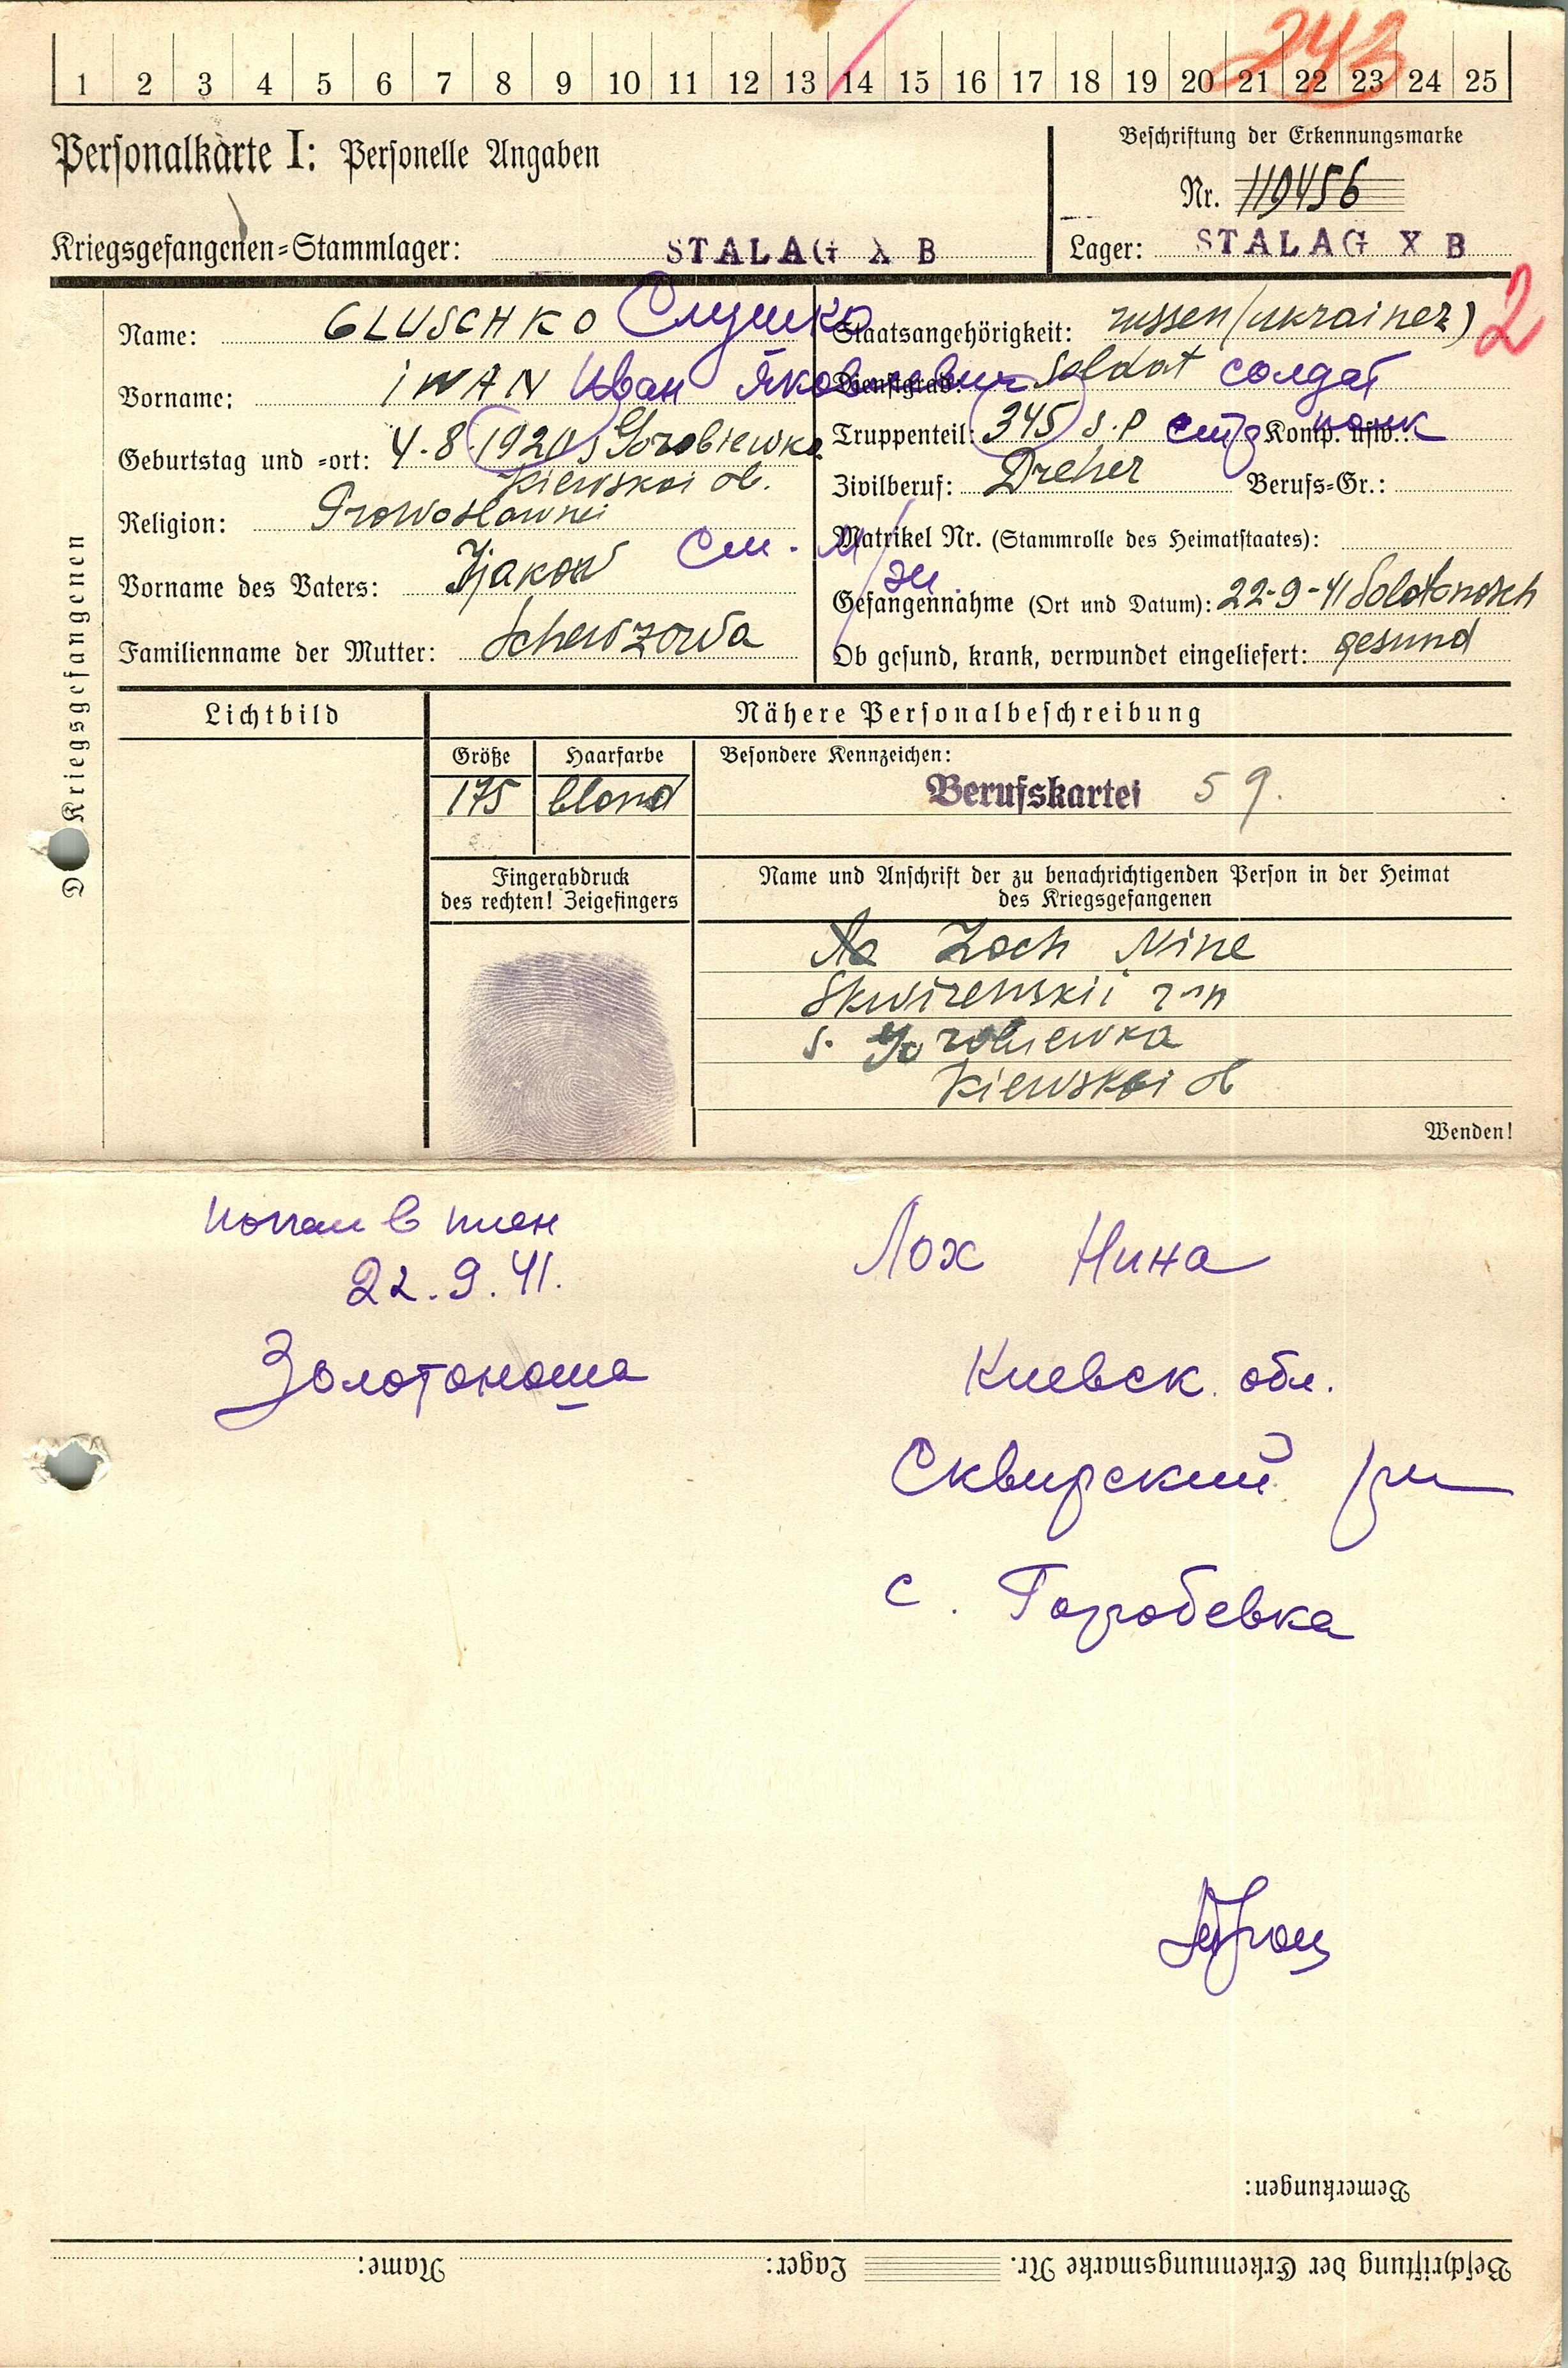 243
1 2 3 4 5 6 7 8 9 10 11 12 13 14 15 16 17 18 19 20 21 22 23 24 25
Personalkarte I: Personelle Angaben
Beschriftung der Erkennungsmarke
Nr. 119456
Kriegsgefangenen=Stammlager: STALAG X B
Lager: STALAG X B
Des Kriegsgefangenen
Name: GLUSCHKO Глушко
Vorname: IWAN Иван Яковлевич
Geburtstag und =ort: 4.8.1920 s Gorobiewka
Kiewskoi ob.
Religion: Prowoslawnei
Vorname des Vaters: Jjakow
Familienname der Mutter: Schewzowa
Staatsangehörigkeit: russen (ukrainer) 2
Dienstgrad: Soldat солдат
Truppenteil: 345 S.P стр полк Komp. usw.:
Zivilberuf: Dreher Berufs=Gr.:
Matrikel Nr. (Stammrolle des Heimatstaates):
Gefangennahme (Ort und Datum): 22-9-41 Solotonosch
Ob gesund, krank, verwundet eingeliefert: gesund
см.
Lichtbild
Nähere Personalbeschreibung
Größe Haarfarbe Besondere Kennzeichen:
175 blond Berufskartei 59.
Fingerabdruck
des rechten! Zeigefingers
Name und Anschrift der zu benachrichtigenden Person in der Heimat
des Kriegsgefangenen
Loch Nine
Skwirenskii r-n
s. Gorobiewka
Kiewskoi ob
Wenden!
попал в плен
22.9.41.
Золотоноша
Лох Нина
Киевск. обл.
Сквирский рн
с. Горобевка
Bemerkungen:
Beschriftung der Erkennungsmarke Nr. Lager: Name: